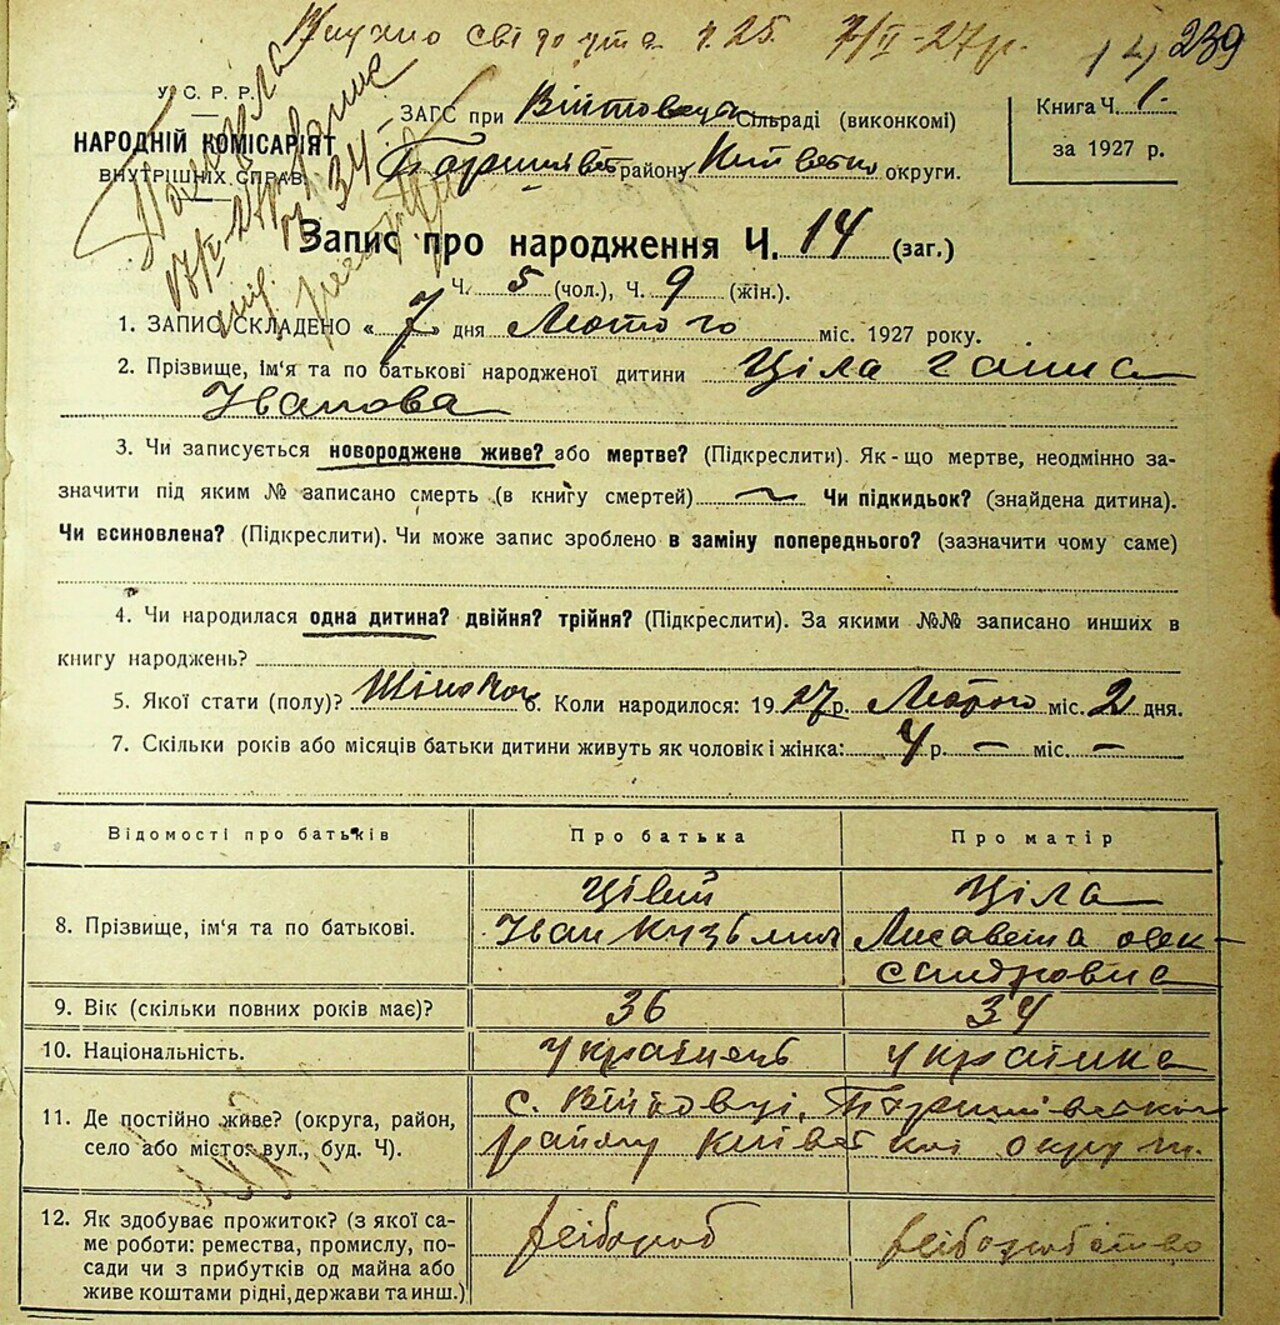 Видано свідоцтва ч. 25. 7/II-27р.
14 239
У. С. Р. Р.
НАРОДНІЙ КОМІСАРІЯТ
ВНУТРІШНІХ СПРАВ.
ЗАГС при Війтовецьк Сільраді (виконкомі)
Баришівськ району Київсько округи.
Книга Ч. 1.
за 1927 р.
Запис про народження Ч. 14 (заг.)
Ч. 5 (чол.), Ч. 9 (жін.).
1. ЗАПИС СКЛАДЕНО « 7 » дня Лютого міс. 1927 року.
2. Прізвище, ім'я та по батькові народженої дитини Ціла Ганна
Іванова
3. Чи записується новороджене живе? або мертве? (Підкреслити). Як-що мертве, неодмінно за-
значити під яким № записано смерть (в книгу смертей) Чи підкидьок? (знайдена дитина).
Чи всиновлена? (Підкреслити). Чи може запис зроблено в заміну попереднього? (зазначити чому саме)
4. Чи народилася одна дитина? двійня? трійня? (Підкреслити). За якими №№ записано инших в
книгу народжень?
5. Якої стати (полу)? Жіночої 6. Коли народилося: 1927 р. Лютого міс. 2 дня.
7. Скільки років або місяців батьки дитини живуть як чоловік і жінка: 4 р. — міс. —
Відомості про батьків Про батька Про матір
8. Прізвище, ім'я та по батькові. Цілий Ціла
Іван Кузьмич Лисавета Олек-
сандровна
9. Вік (скільки повних років має)? 36 34
10. Національність. Українець Українка
11. Де постійно живе? (округа, район, с. Війтовці, Баришівського
село або місто, вул., буд. Ч). району Київської округи.
12. Як здобуває прожиток? (з якої са- хлібороб хліборобство
ме роботи: ремества, промислу, по-
сади чи з прибутків од майна або
живе коштами рідні, держави та инш.)